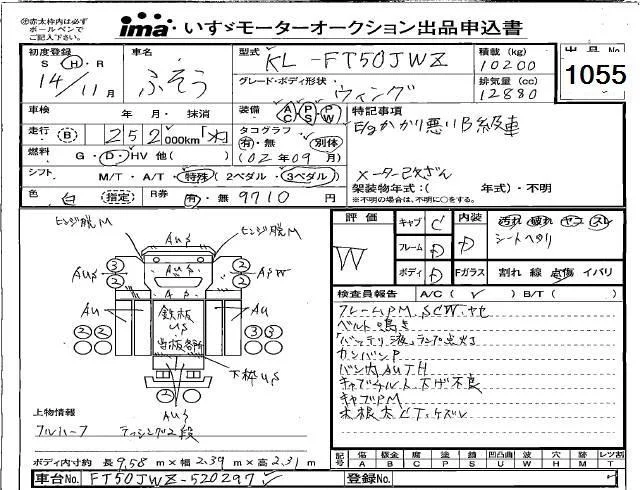 ㊟赤太枠内は必ず
ボールペンで
ご記入下さい。
ima いすゞモーターオークション出品申込書
初度登録
S・H・R
14/11月
車名
ふそう
型式
KL-FT50JWZ
グレード・ボディ形状
ウィング
積載 (kg)
10200
排気量 (cc)
12880
出品No
1055
車検 年・月・抹消
装備 AC PS PW
特記事項
E/gかかり悪いB級車
走行 (B) 252,000km
タコグラフ
有・無 別体
(02年09月)
燃料 G・D・HV 他( )
メーター改ざん
シフト M/T・A/T・特殊(2ペダル・3ペダル)
架装物年式：( 年式)・不明
※不明の場合は、不明に○をする。
色 白 (指定) R券 有・無 9710 円
ヒンジ脱M
ヒンジ脱M
AUS
AUS
AUS
ASW
3
2
2
2
AU
AU
鉄板
US
床板各所
2 2
3 3
下枠US
AUS
上物情報
フルハーフ
ラッシング2段
ボディ内寸約 長9.58m×幅2.39m×高2.31m
車台No. FT50JWZ-520297
評価
W
キャブ C
フレーム D
ボディ D
内装 D
汚れ 破れ ヤコ スレ
シートへタリ
Fガラス 割れ 線 点傷 イバリ
検査員報告 A/C(✓) B/T( )
フレームPM、SCW、サビ
ベルト鳴き
「バッテリ液」ランプ点灯
カンバンP
バン内AUTH
キャブチルト下げ不良
キャブPM
床根太CT、ケズレ
記号
傷 A
板金 B
腐 C
塗 P
錆 S
凹凸曲 U
波 W
穴 H
跡 M
レツ割 T
登録No.